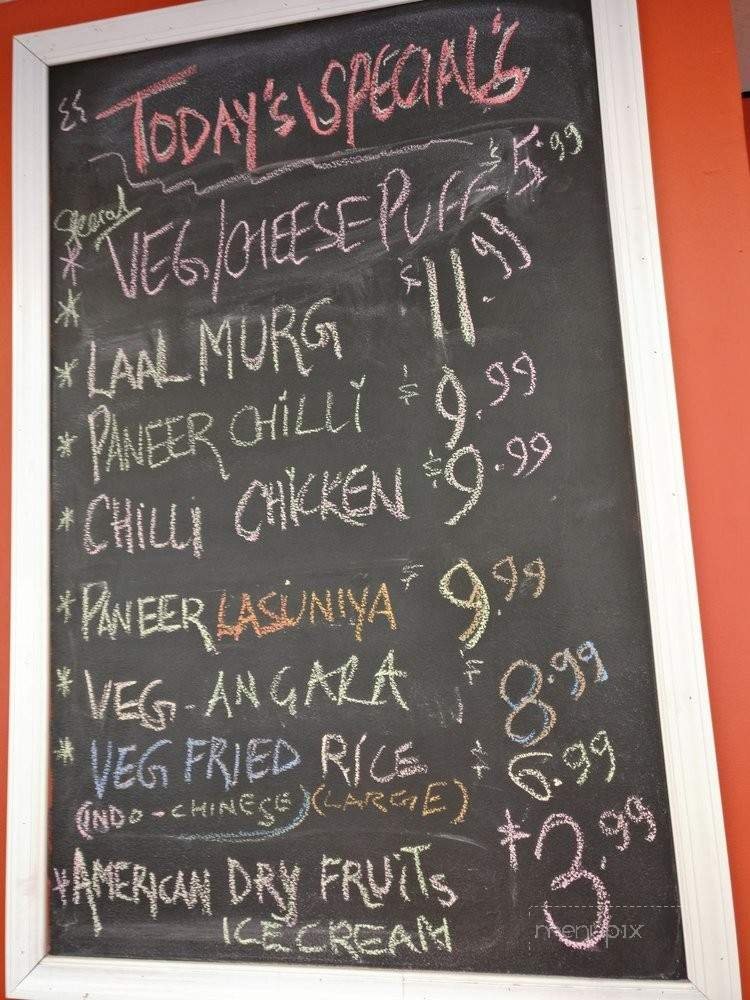 TODAY'S SPECIAL'S
* VEG/CHEESE PUFF $5.99
*
* LAAL MURG $11.99
* PANEER CHILLI $9.99
* CHILLI CHICKEN $9.99
* PANEER LASUNIYA $9.99
* VEG-ANGARA $8.99
* VEG FRIED RICE $6.99
(INDO-CHINESE) (LARGE)
* AMERICAN DRY FRUITS $3.99
ICE CREAM
menupix